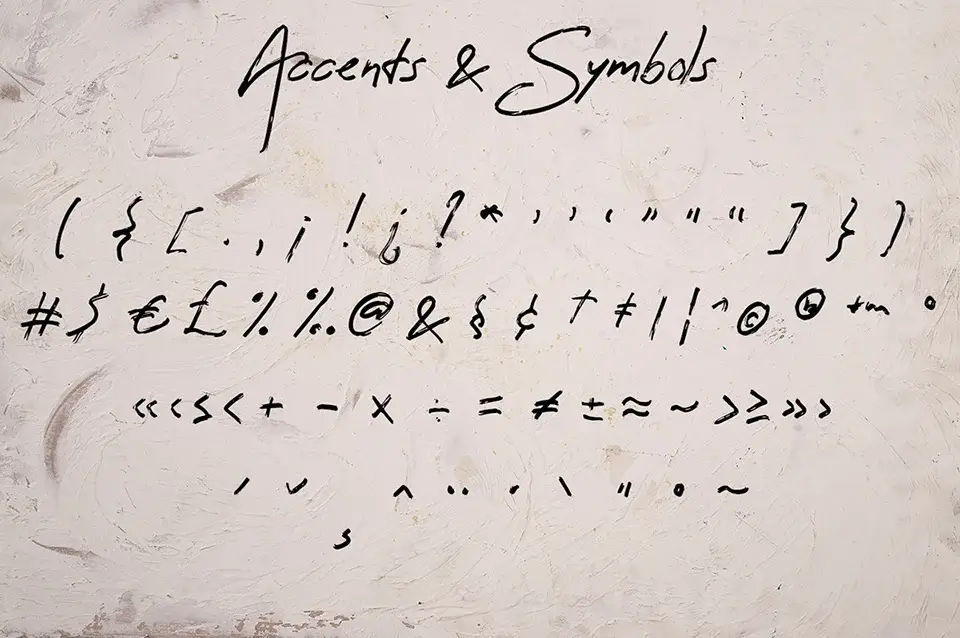 Accents & Symbols
( { [ . , ¡ ! ¿ ? * ’ ’ ‘ ” " “ ] } )
# $ € £ % ‰ @ & § ¢ † ‡ | ¦ ^ © ® ™ °
« ‹ ≤ < + − × ÷ = ≠ ± ≈ ~ > ≥ » ›
´ ˇ ˆ ¨ ˙ ` ˝ ˚ ˜
¸